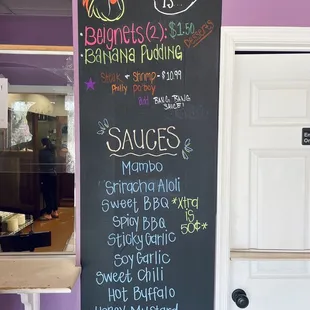 is...
Beignets(2): $1.50
Banana Pudding
Desserts
Steak + Shrimp - $10.99
Philly po'boy
Add Bang Bang
Sauce!
SAUCES
Mambo
Sriracha Aioli
Sweet BBQ *Xtra
Spicy BBQ is
Sticky Garlic 50¢*
Soy Garlic
Sweet Chili
Hot Buffalo
Honey Mustard